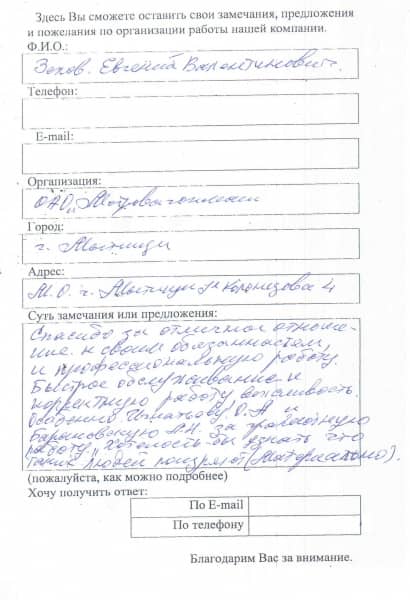 Здесь Вы сможете оставить свои замечания, предложения
и пожелания по организации работы нашей компании.
Ф.И.О.:
Евгений Валентинович
Телефон:
E-mail:
Организация:
ОАО „Метровагонмаш
Город:
г. Мытищи
Адрес:
М.О. г. Мытищи ул Колонцова 4
Суть замечания или предложения:
Спасибо за отличное отноше-
ние к своим обязанностям,
и профессиональную работу.
Быстрое обслуживание и
корректную работу вежливость.
Особенно Игнатьову О.А и
Барановскую А.Н. за
работу. Хотелось бы узнать что
таких людей поощряют (Материально).
(пожалуйста, как можно подробнее)
Хочу получить ответ:
По E-mail
По телефону
Благодарим Вас за внимание.